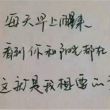 每天早上醒来
看到你和阳光都在
这就是我想要的